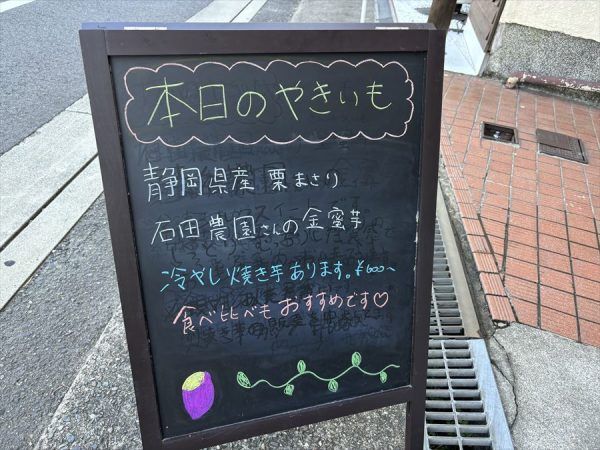 本日のやきいも
静岡県産 栗まさり
石田農園さんの金蜜芋
冷やし焼き芋あります。¥600〜
食べ比べもおすすめです♡